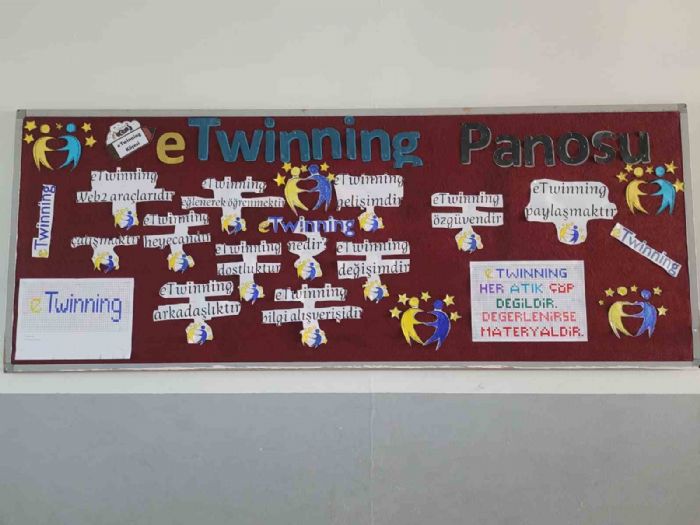 eTwinning Köşesi
eTwinning Panosu
eTwinning
eTwinning
Web2 araçlarıdır
eTwinning
eğlenerek öğrenmektir
eTwinning
gelişimdir
eTwinning
çalışmaktır
eTwinning
heyecandır
eTwinning
nedir
eTwinning
dostluktur
eTwinning
değişimdir
eTwinning
arkadaşlıktır
eTwinning
bilgi alışverişidir
eTwinning
özgüvendir
eTwinning
paylaşmaktır
eTwinning
eTwinning
ETWINNING
HER ATIK ÇÖP
DEĞİLDİR.
DEĞERLENİRSE
MATERYALDİR.